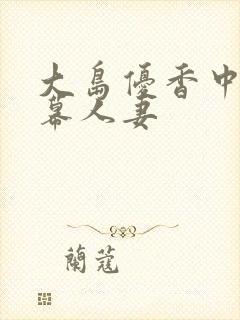 大島優香中字
幕人妻
蘭蔻